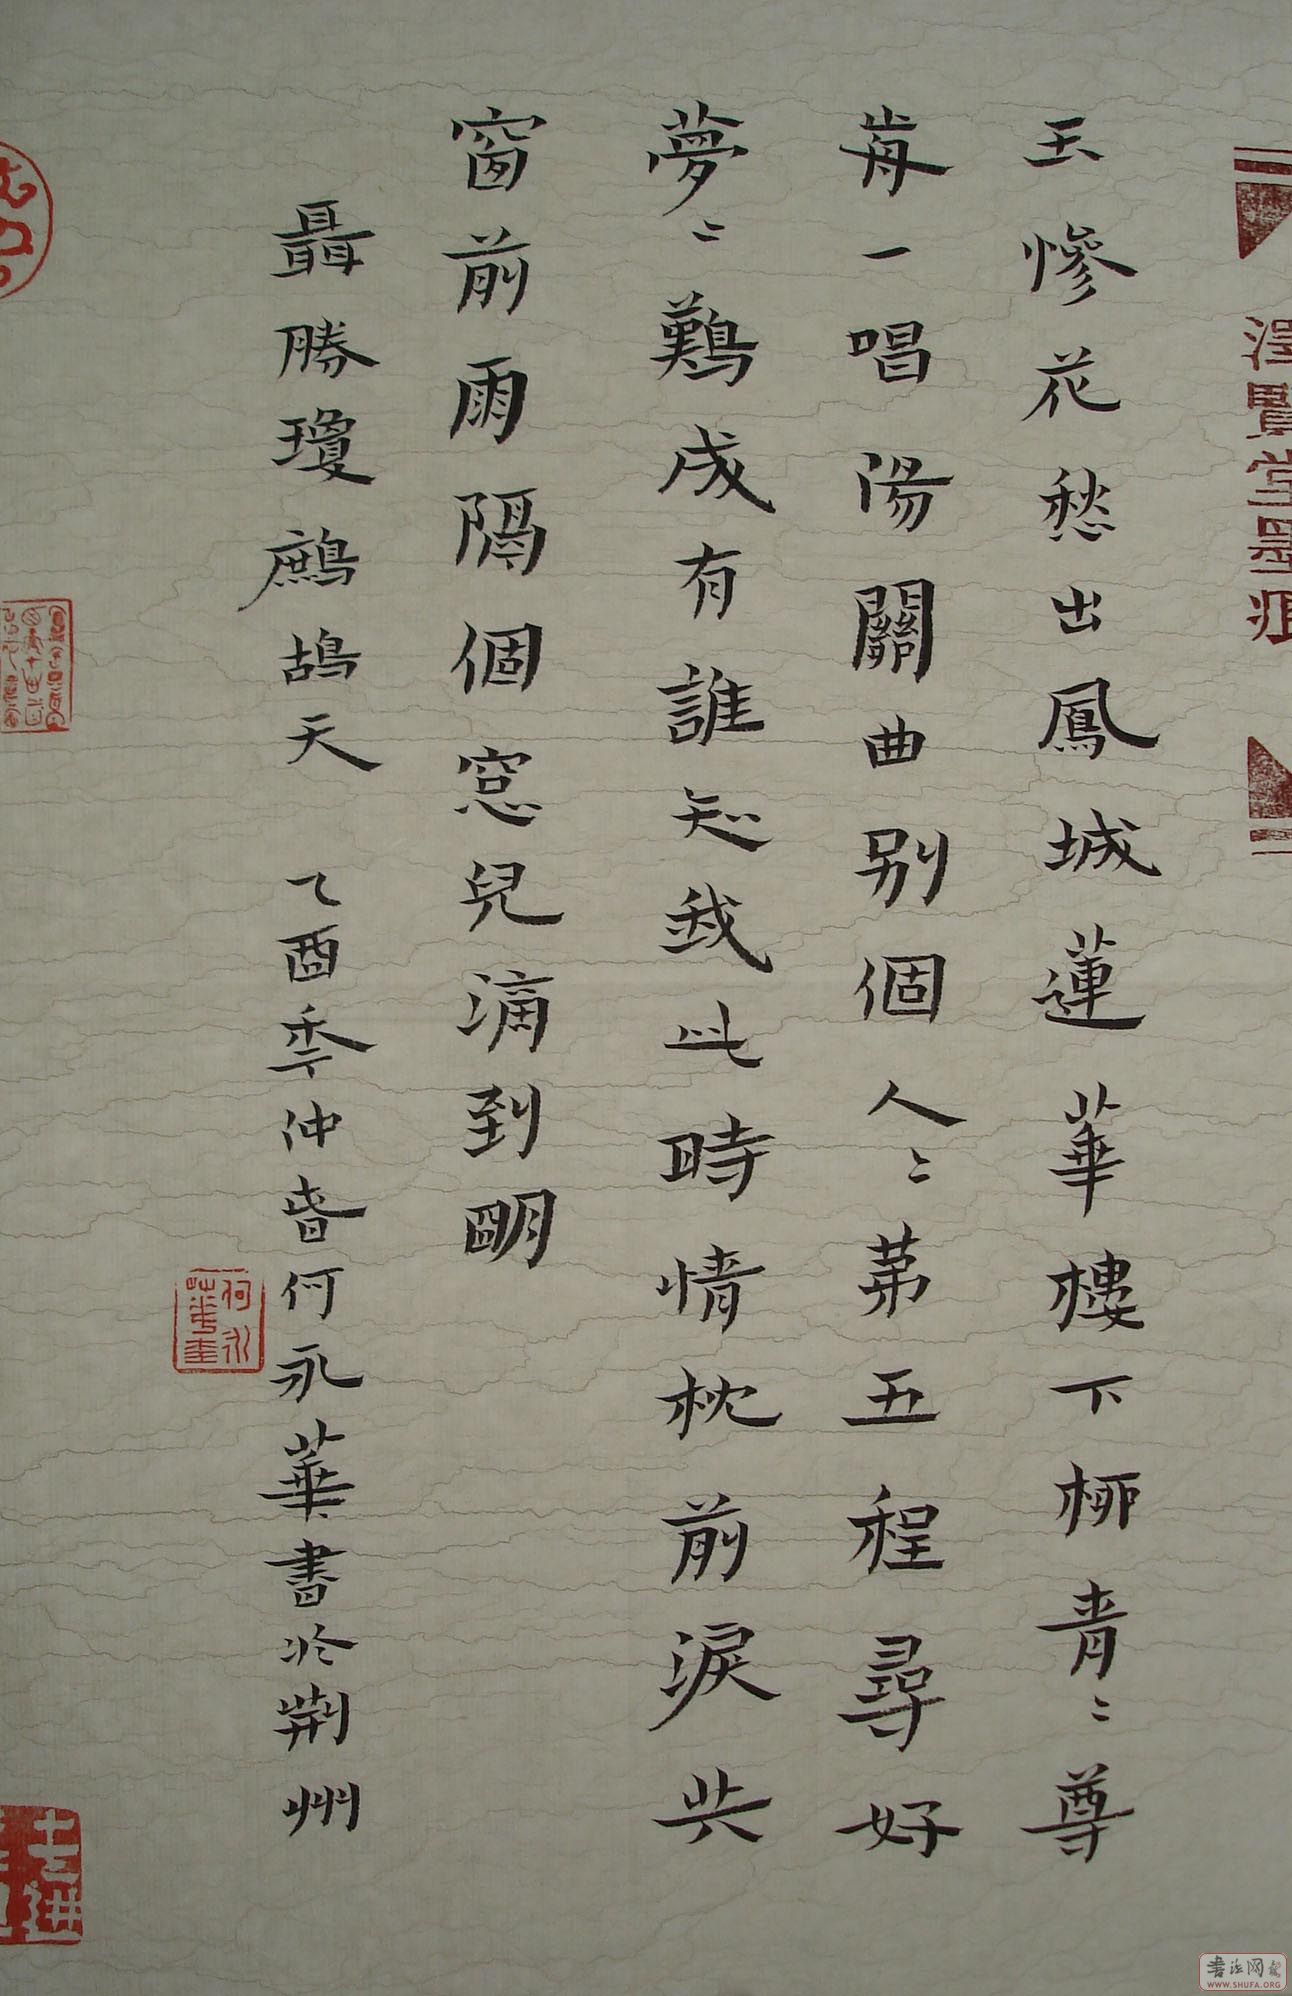 澤賢堂墨痕
玉慘花愁出鳳城蓮華樓下柳青〻尊
前一唱陽關曲別個人〻苐五程尋好
夢〻難成有誰知我此時情枕前淚共
窗前雨隔個窓兒滴到明
聶勝瓊鷓鴣天 乙酉季仲春何永華書於荆州
何永華印
書法网
WWW.SHUFA.ORG